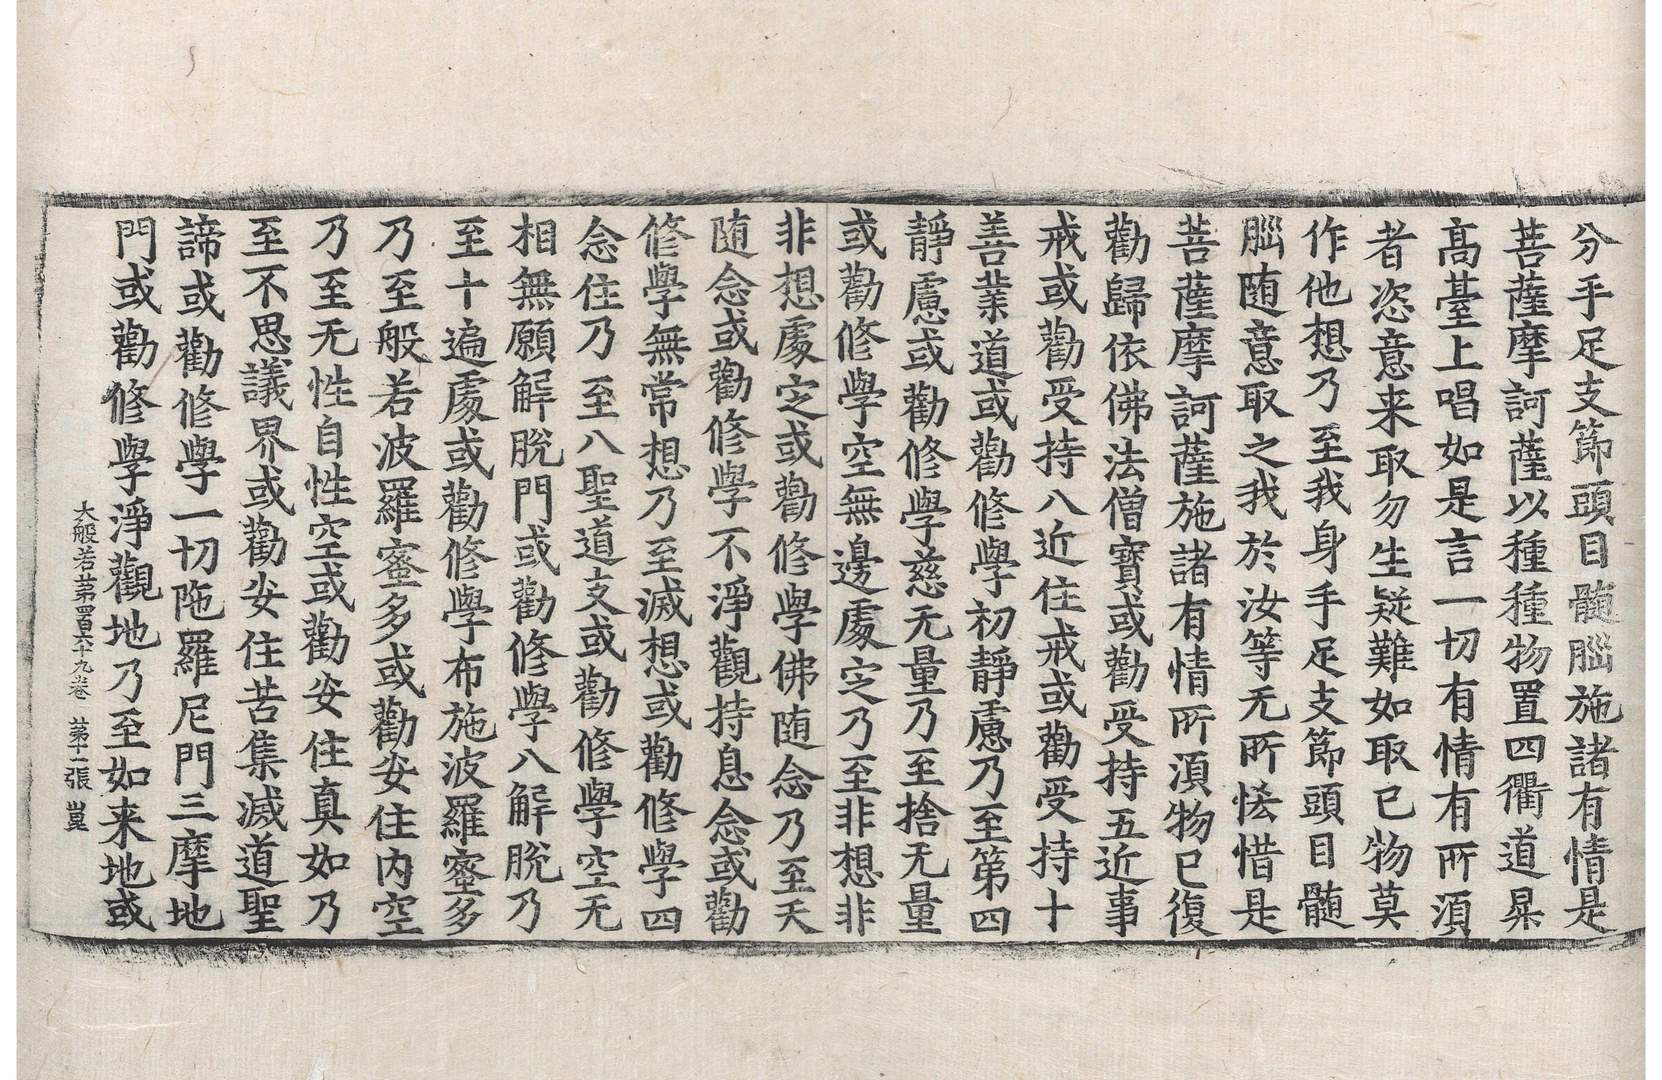 分手足支節頭目髓腦施諸有情是
菩薩摩訶薩以種種物置四衢道昇
高臺上唱如是言一切有情有所須
者恣意来取勿生疑難如取己物莫
作他想乃至我身手足支節頭目髓
腦随意取之我於汝等无所悋惜是
菩薩摩訶薩施諸有情所須物已復
勸歸依佛法僧寶或勸受持五近事
戒或勸受持八近住戒或勸受持十
善業道或勸修學初靜慮乃至第四
靜慮或勸修學慈无量乃至捨无量
或勸修學空無邊處定乃至非想非
非想處定或勸修學佛随念乃至天
随念或勸修學不淨觀持息念或勸
修學無常想乃至滅想或勸修學四
念住乃至八聖道支或勸修學空无
相無願解脫門或勸修學八解脫乃
至十遍處或勸修學布施波羅蜜多
乃至般若波羅蜜多或勸安住內空
乃至无性自性空或勸安住真如乃
至不思議界或勸安住苦集滅道聖
諦或勸修學一切陁羅尼門三摩地
門或勸修學淨觀地乃至如来地或
大般若第四百六十九卷 第十一張 崑